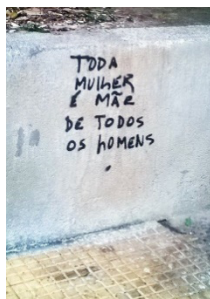 TODA
MULHER
É MÃE
DE TODOS
OS HOMENS
.